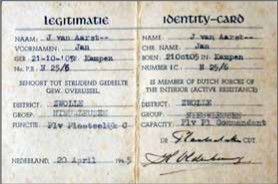 LEGITIMATIE
NAAM: J van Aarst--
VOORNAMEN: Jan
GEB 21-10-05 Kampen
No. P.B. N 25/6
BEHOORT TOT STRIJDEND GEDEELTE
GEW. OVERIJSSEL
DISTRICT: ZWOLLE
GROEP:
FUNCTIE Plv Plaatselijk C
NEDERLAND, 20 April 1945
IDENTITY-CARD
NAME J van Aarst--
CHR. NAME Jan
BORN 21Oct05 IN Kampen
NUMBER I.C. N 25/6
IS MEMBER OF DUTCH FORCES OF
THE INTERIOR (ACTIVE RESISTANCE)
DISTRICT: ZWOLLE
GROUP
CAPACITY Plv Pl Commandant
De CDT